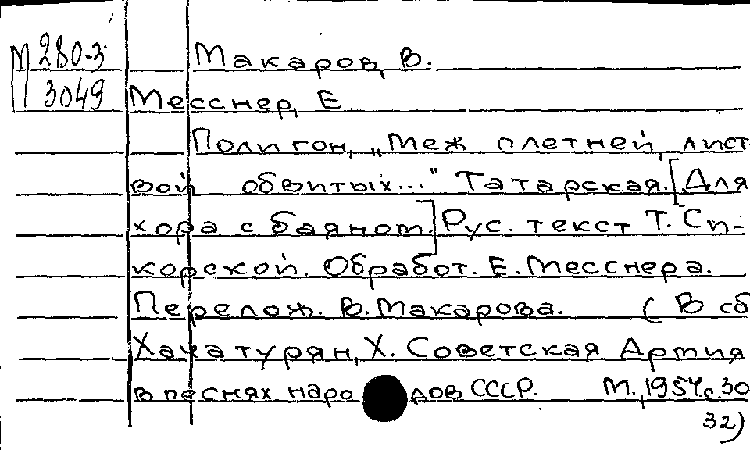 М 280-3 Макаров, В.
3049 Месснер, Е
Полигон, „Меж плетней, лист
вой обвитых..." Татарская. [Для
хора с баяном.] Рус. текст Т. Си-
корской. Обработ. Е. Месснера.
Перелож. В. Макарова. (В сб
Хачатурян, Х. Советская Армия
в песнях народов СССР. М., 1954, с 30
32)